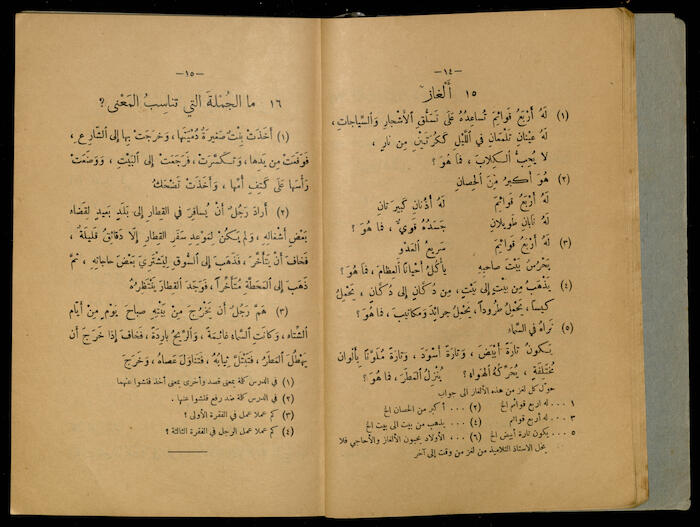 — ١٤ —
١٥ أَلْغَازٌ
(١) لَهُ أَرْبَعُ قَوَائِمَ تُسَاعِدُهُ عَلَى تَسَلُّقِ الْأَشْجَارِ وَالسِّيَاجَاتِ،
لَهُ عَيْنَانِ تَلْمَعَانِ فِي اللَّيْلِ كَكُرَتَيْنِ مِنْ نَارٍ،
لَا يُحِبُّ الْكِلَابَ، فَمَا هُوَ؟
(٢) هُوَ أَكْبَرُ مِنَ الْحِصَانِ
لَهُ أَرْبَعُ قَوَائِمَ لَهُ أُذْنَانِ كَبِيرَتَانِ
لَهُ نَابَانِ طَوِيلَانِ جَسَدُهُ قَوِيٌّ، فَمَا هُوَ؟
(٣) لَهُ أَرْبَعُ قَوَائِمَ سَرِيعُ الْعَدْوِ
يَحْرُسُ بَيْتَ صَاحِبِهِ يَأْكُلُ أَحْيَانًا الْعِظَامَ، فَمَا هُوَ؟
(٤) يَذْهَبُ مِنْ بَيْتٍ إِلَى بَيْتٍ، مِنْ دُكَّانٍ إِلَى دُكَّانٍ، يَحْمِلُ
كِيسًا، يَحْمِلُ طُرُودًا، يَحْمِلُ جَرَائِدَ وَمَكَاتِيبَ، فَمَا هُوَ؟
(٥) نَرَاهُ فِي السَّمَاءِ
يَكُونُ تَارَةً أَبْيَضَ، وَتَارَةً أَسْوَدَ، وَتَارَةً مُلَوَّنًا بِأَلْوَانٍ
مُخْتَلِفَةٍ، يُحَرِّكُهُ الْهَوَاءُ؟ يُنْزِلُ الْمَطَرَ، فَمَا هُوَ؟
حوّل كل لغز من هذه الألغاز الى جواب
١ ... له اربع قوائم الخ (٢) ... أكبر من الحصان الخ
٣ ... له أربع قوائم (٤) ... يذهب من بيت الى بيت الخ
٥ ... يكون تارة أبيض الخ (٦) ... الأولاد يحبون الألغاز والأحاجي فلا
يخل الاستاذ التلاميذ من لغز من وقت إلى آخر
— ١٥ —
١٦ مَا الْجُمْلَةُ الَّتِي تُنَاسِبُ الْمَعْنَى؟
(١) أَخَذَتْ بِنْتٌ صَغِيرَةٌ دُمْيَتَهَا، وَخَرَجَتْ بِهَا إِلَى الشَّارِعِ،
فَوَقَعَتْ مِنْ يَدِهَا، وَتَكَسَّرَتْ، فَرَجَعَتْ إِلَى الْبَيْتِ، وَوَضَعَتْ
رَأْسَهَا عَلَى كَتِفِ أُمِّهَا، وَأَخَذَتْ تَضْحَكُ
(٢) أَرَادَ رَجُلٌ أَنْ يُسَافِرَ فِي الْقِطَارِ إِلَى بَلَدٍ بَعِيدٍ لِقَضَاءِ
بَعْضِ أَشْغَالِهِ، وَلَمْ يَكُنْ لِمَوْعِدِ سَفَرِ الْقِطَارِ إِلَّا دَقَائِقُ قَلِيلَةٌ،
فَخَافَ أَنْ يَتَأَخَّرَ، فَذَهَبَ إِلَى السُّوقِ لِيَشْتَرِيَ بَعْضَ حَاجَاتِهِ، ثُمَّ
ذَهَبَ إِلَى الْمَحَطَّةِ مُتَأَخِّرًا، فَوَجَدَ الْقِطَارَ يَنْتَظِرُهُ
(٣) هَمَّ رَجُلٌ أَنْ يَخْرُجَ مِنْ بَيْتِهِ صَبَاحَ يَوْمٍ مِنْ أَيَّامِ
الشِّتَاءِ، وَكَانَتِ السَّمَاءُ غَائِمَةً، وَالرِّيحُ بَارِدَةً، فَخَافَ إِذَا خَرَجَ أَنْ
يَهْطُلَ الْمَطَرُ، فَتَبْتَلَّ ثِيَابُهُ، فَتَنَاوَلَ عَصَاهُ، وَخَرَجَ
(١) في الدرس كلمة بمعنى قصد وأخرى بمعنى أخذ فتشوا عنهما
(٢) في الدرس كلمة ضد رفع فتشوا عنها.
(٣) كم عملا عمل في الفقرة الأولى؟
(٤) كم عملا عمل الرجل في الفقرة الثالثة؟